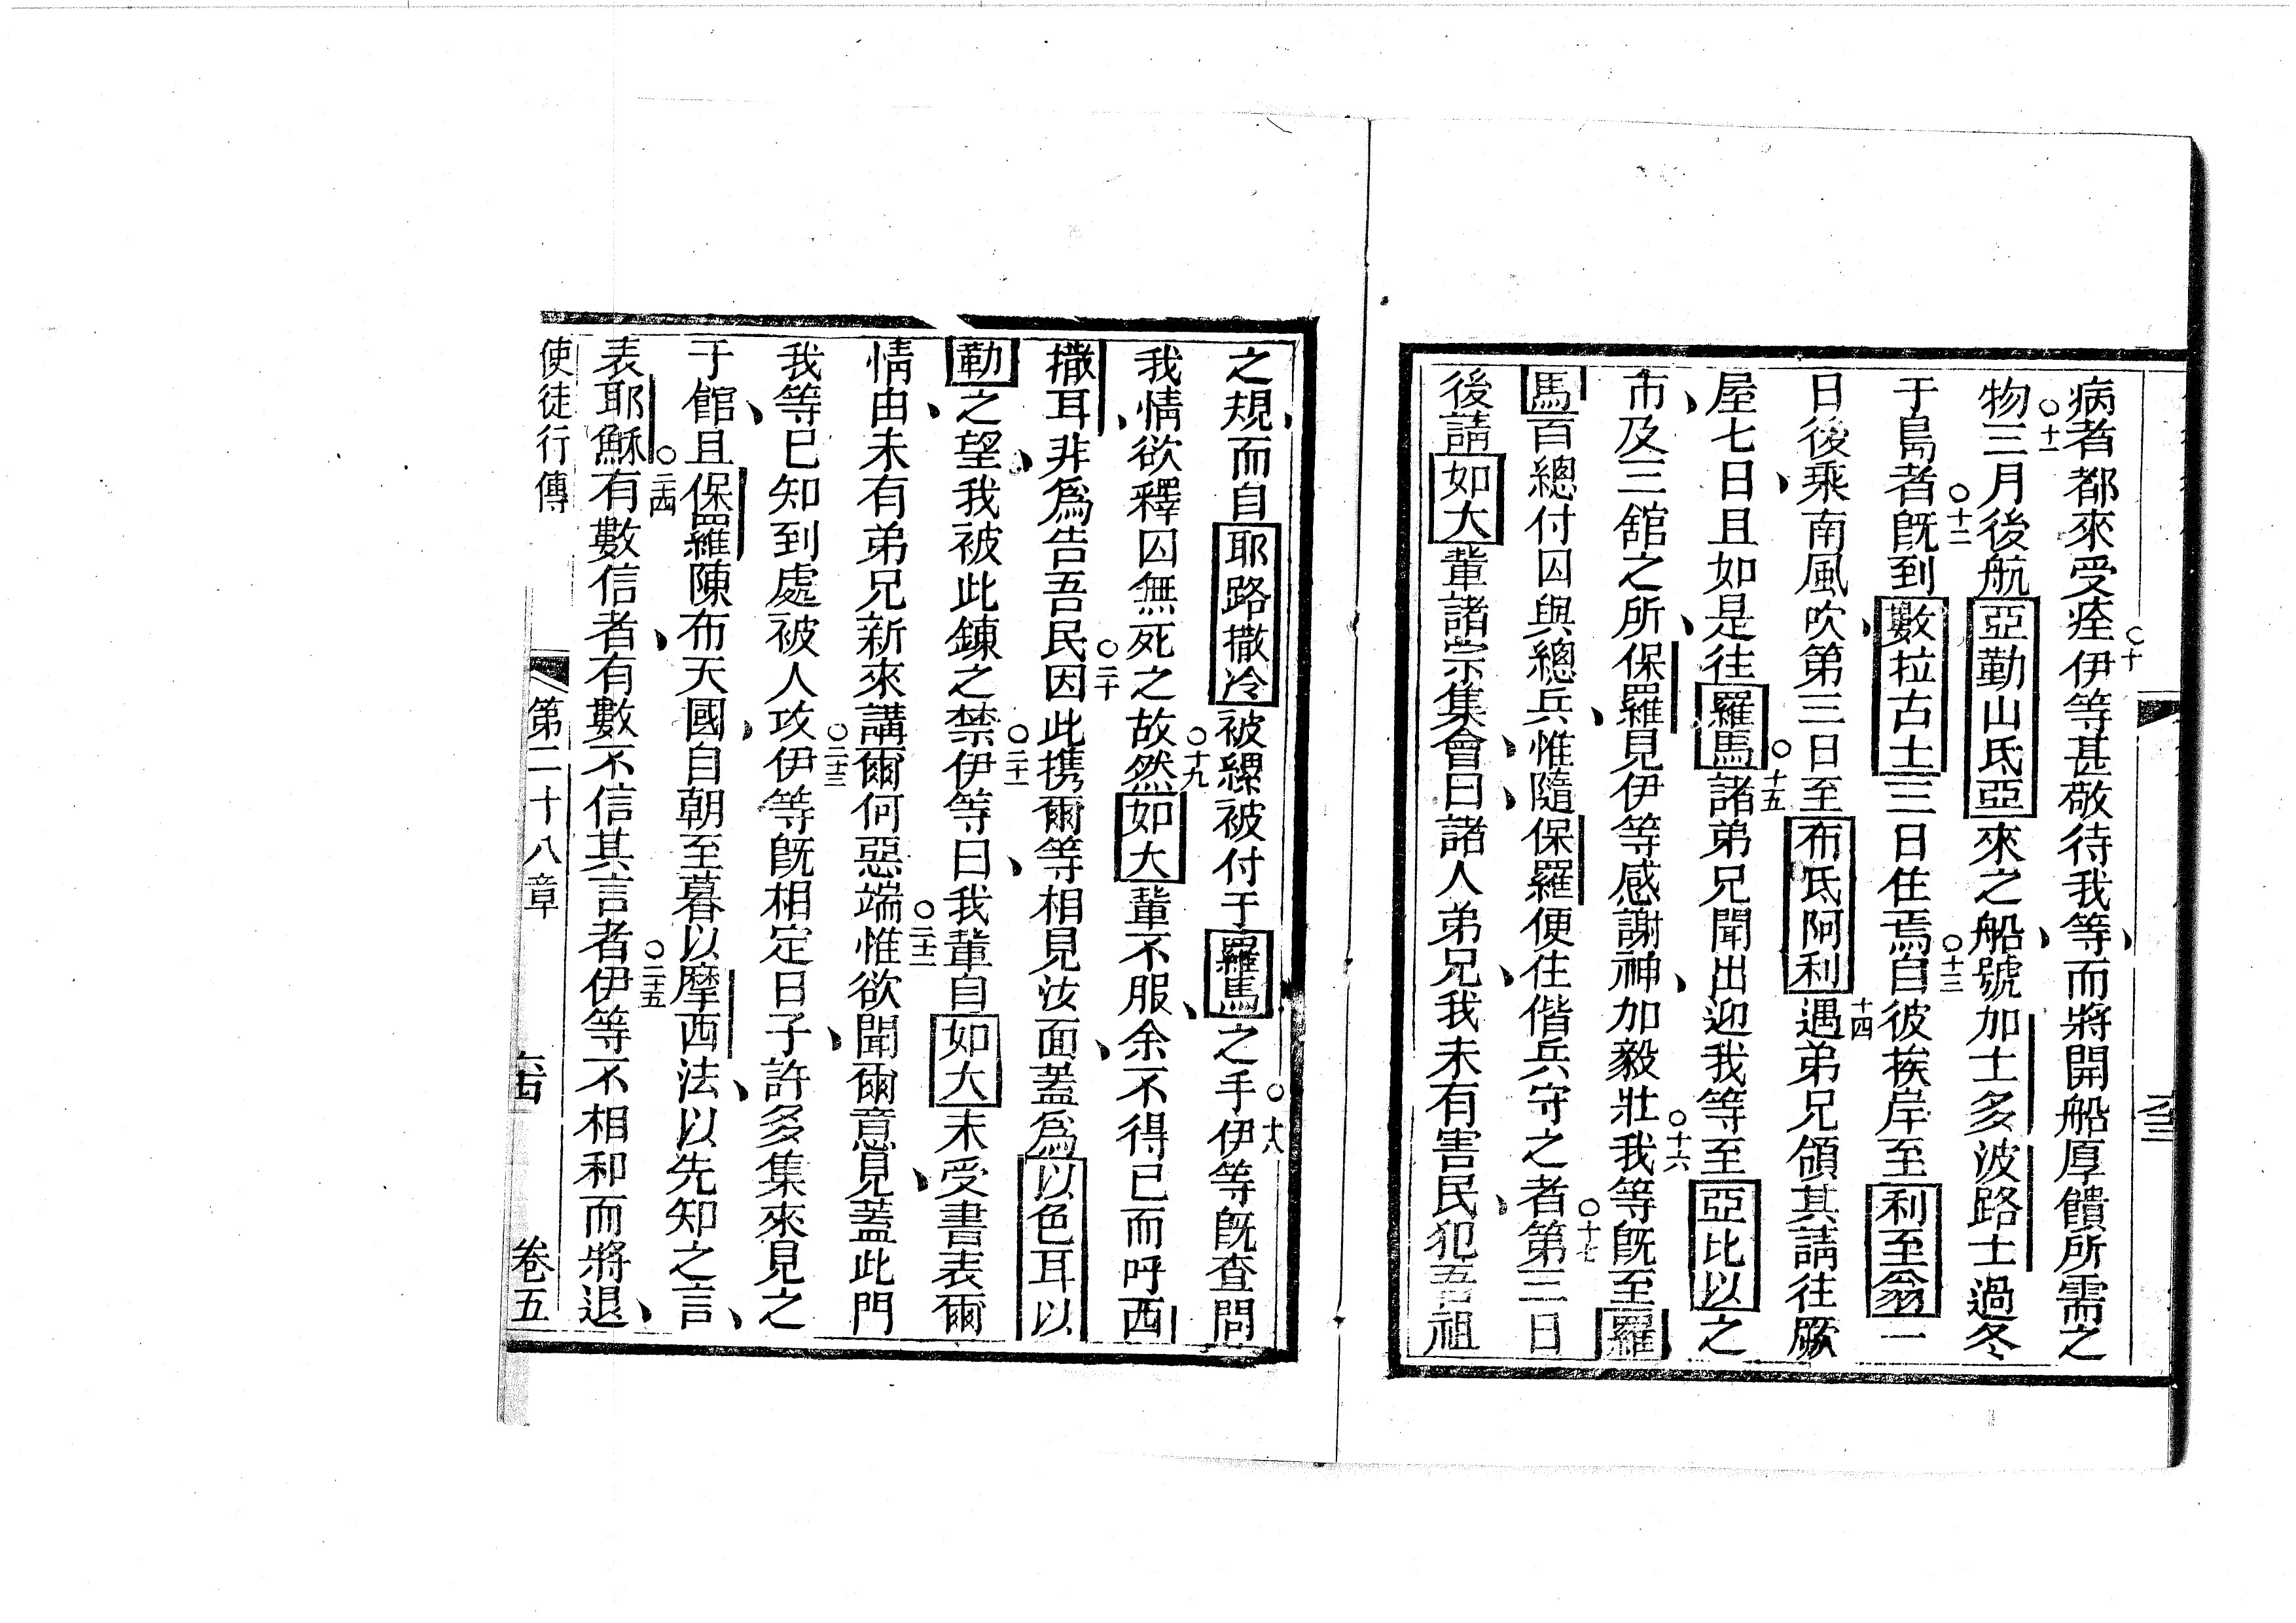 病者都來受痊○十伊等甚敬待我等、而將開船厚饋所需之
物○十一三月後航亞勤山氏亞來之船、號加士多波路士過冬
于島者○十二旣到數拉古士三日住焉○十三自彼挨岸至利至翁一
日後、乘南風吹、第三日至布氐阿利十四遇弟兄領其請往厥
屋七日且如是往羅馬○十五諸弟兄聞出迎我等至亞比以之
市、及三舘之所、保羅見伊等感謝神、加毅壯○十六我等旣至羅
馬百總付囚與總兵、惟隨保羅便住偕兵守之者○十七第三日
後請如大輩諸宗集會、曰、諸人弟兄、我未有害民、犯吾祖
之規、而自耶路撒冷被縲被付于羅馬之手○十八伊等旣查問
我、情欲釋囚無死之故○十九然如大輩不服、余不得已而呼西
撒耳、非爲告吾民○二十因此携爾等相見汝面、蓋爲以色耳以
勒之望、我被此鍊之禁○二十一伊等曰、我輩自如大未受書表爾
情由、未有弟兄新來講爾何惡端○二十二惟欲聞爾意見、蓋此門
我等已知到處被人攻○二十三伊等旣相定日子、許多集來見之
于館、且保羅陳布天國、自朝至暮以摩西法、以先知之言、
表耶穌○二十四有數信者、有數不信其言者○二十五伊等不相和而將退、
使徒行傳 第二十八章 卷五